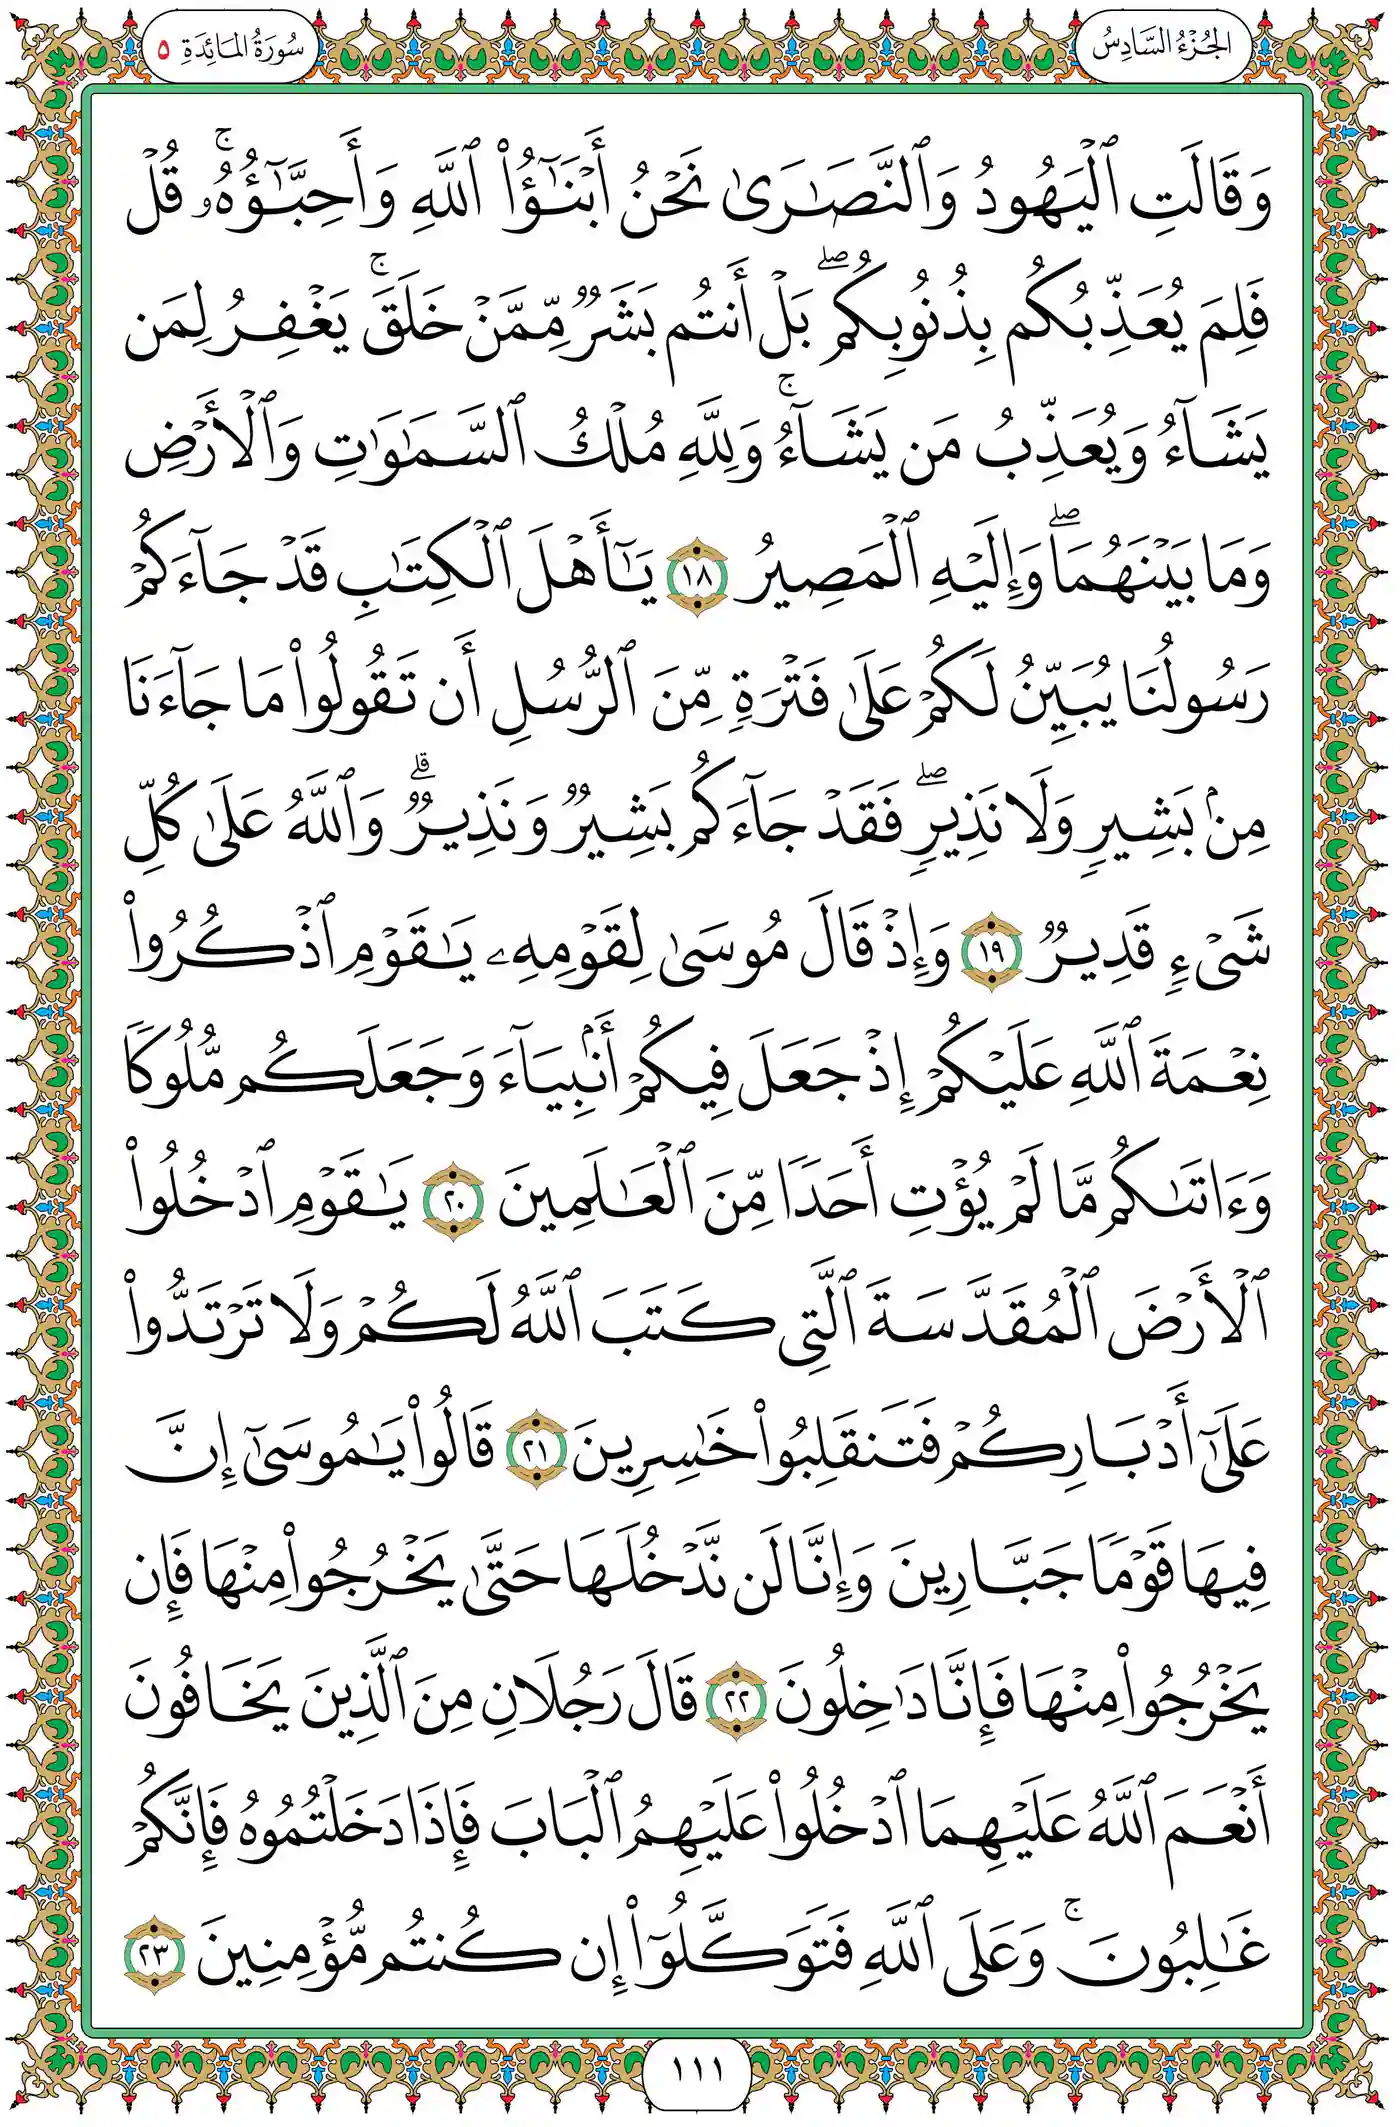 الجُزْءُ السَّادِسُ
سُورَةُ المَائِدَةِ ٥
وَقَالَتِ ٱلۡيَهُودُ وَٱلنَّصَٰرَىٰ نَحۡنُ أَبۡنَٰٓؤُاْ ٱللَّهِ وَأَحِبَّٰٓؤُهُۥۚ قُلۡ
فَلِمَ يُعَذِّبُكُم بِذُنُوبِكُمۖ بَلۡ أَنتُم بَشَرٞ مِّمَّنۡ خَلَقَۚ يَغۡفِرُ لِمَن
يَشَآءُ وَيُعَذِّبُ مَن يَشَآءُۚ وَلِلَّهِ مُلۡكُ ٱلسَّمَٰوَٰتِ وَٱلۡأَرۡضِ
وَمَا بَيۡنَهُمَاۖ وَإِلَيۡهِ ٱلۡمَصِيرُ ١٨ يَٰٓأَهۡلَ ٱلۡكِتَٰبِ قَدۡ جَآءَكُمۡ
رَسُولُنَا يُبَيِّنُ لَكُمۡ عَلَىٰ فَتۡرَةٖ مِّنَ ٱلرُّسُلِ أَن تَقُولُواْ مَا جَآءَنَا
مِنۢ بَشِيرٖ وَلَا نَذِيرٖۖ فَقَدۡ جَآءَكُم بَشِيرٞ وَنَذِيرٞۗ وَٱللَّهُ عَلَىٰ كُلِّ
شَيۡءٖ قَدِيرٞ ١٩ وَإِذۡ قَالَ مُوسَىٰ لِقَوۡمِهِۦ يَٰقَوۡمِ ٱذۡكُرُواْ
نِعۡمَةَ ٱللَّهِ عَلَيۡكُمۡ إِذۡ جَعَلَ فِيكُمۡ أَنۢبِيَآءَ وَجَعَلَكُم مُّلُوكٗا
وَءَاتَىٰكُم مَّا لَمۡ يُؤۡتِ أَحَدٗا مِّنَ ٱلۡعَٰلَمِينَ ٢٠ يَٰقَوۡمِ ٱدۡخُلُواْ
ٱلۡأَرۡضَ ٱلۡمُقَدَّسَةَ ٱلَّتِي كَتَبَ ٱللَّهُ لَكُمۡ وَلَا تَرۡتَدُّواْ
عَلَىٰٓ أَدۡبَارِكُمۡ فَتَنقَلِبُواْ خَٰسِرِينَ ٢١ قَالُواْ يَٰمُوسَىٰٓ إِنَّ
فِيهَا قَوۡمٗا جَبَّارِينَ وَإِنَّا لَن نَّدۡخُلَهَا حَتَّىٰ يَخۡرُجُواْ مِنۡهَا فَإِن
يَخۡرُجُواْ مِنۡهَا فَإِنَّا دَٰخِلُونَ ٢٢ قَالَ رَجُلَانِ مِنَ ٱلَّذِينَ يَخَافُونَ
أَنۡعَمَ ٱللَّهُ عَلَيۡهِمَا ٱدۡخُلُواْ عَلَيۡهِمُ ٱلۡبَابَ فَإِذَا دَخَلۡتُمُوهُ فَإِنَّكُمۡ
غَٰلِبُونَۚ وَعَلَى ٱللَّهِ فَتَوَكَّلُوٓاْ إِن كُنتُم مُّؤۡمِنِينَ ٢٣
١١١